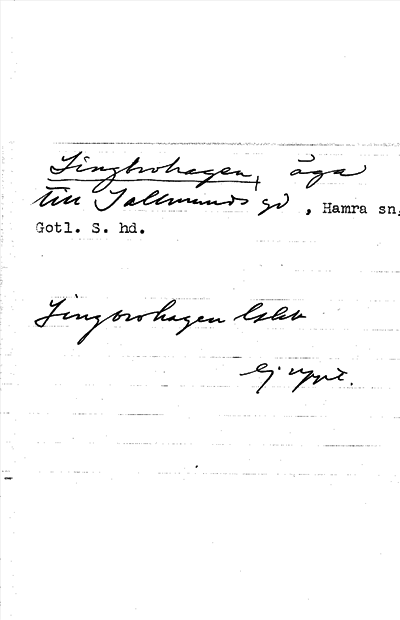 Lingbrohagen, äga
till Sallmunds gd, Hamra sn,
Gotl. S. hd.
Lingbrohagen
Ej uppt.